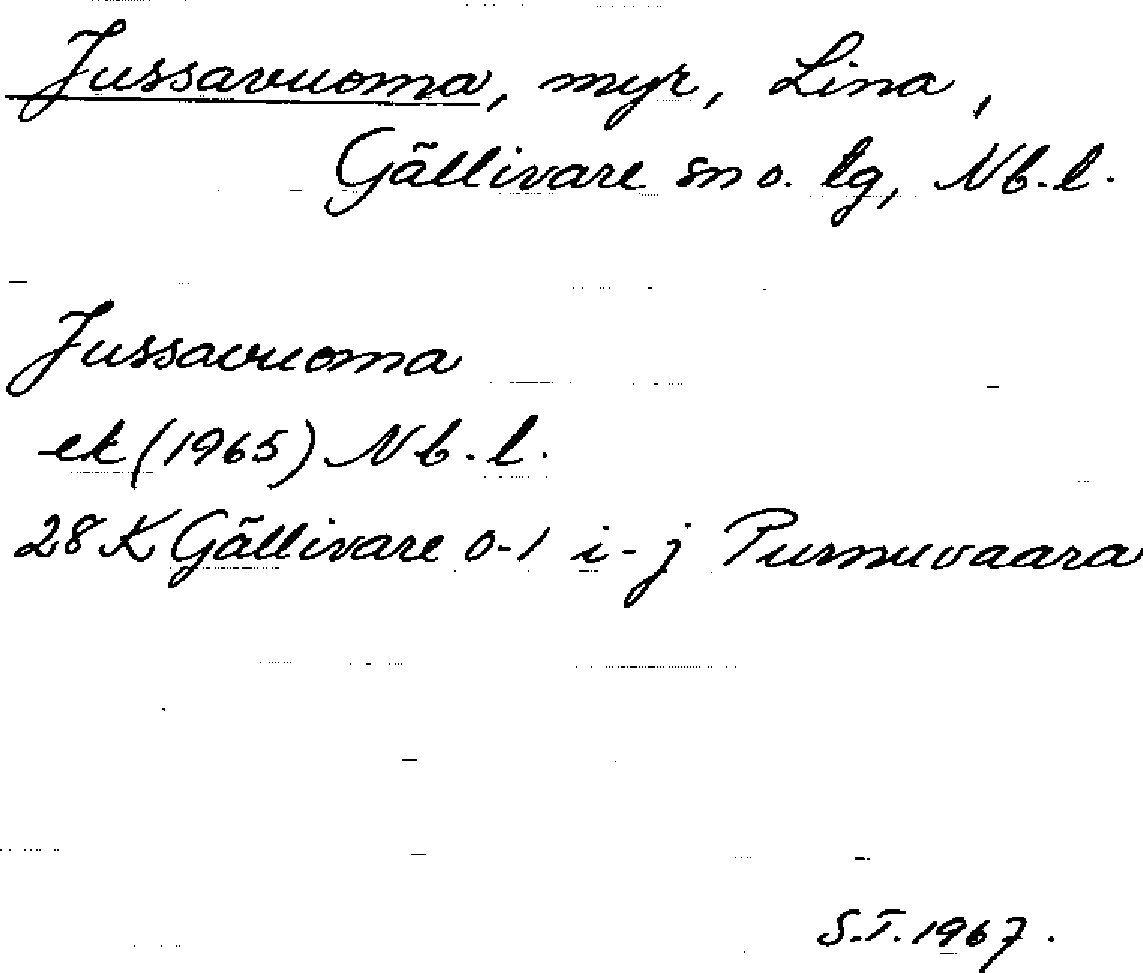 Jussavuoma, myr, Lina,
Gällivare sn o. lg, Nb.l.
Jussavuoma
ek (1965) Nb.l.
28 K Gällivare 0-1 i-j Purnuvaara
S.T. 1967.